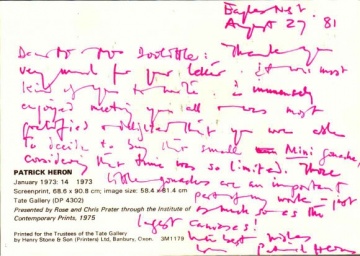 Eagles Nest.
August 27 81
Dear Mr Doolittle: Thank you
very much for your letter. It was most
kind of you to write. I immensely
enjoyed meeting you all & was most
gratified & delighted that you were able
to decide to buy that small Mini gouache,
considering that time was so limited. Those
little gouaches are an important
part of my work – just
as much so as the
largest canvases!
With best wishes
Patrick Heron
PATRICK HERON
January 1973: 14 1973
Screenprint, 68.6 x 90.8 cm; image size: 58.4 x 81.4 cm
Tate Gallery (DP 4302)
Presented by Rose and Chris Prater through the Institute of
Contemporary Prints, 1975
Printed for the Trustees of the Tate Gallery
by Henry Stone & Son (Printers) Ltd, Banbury, Oxon. 3M1179